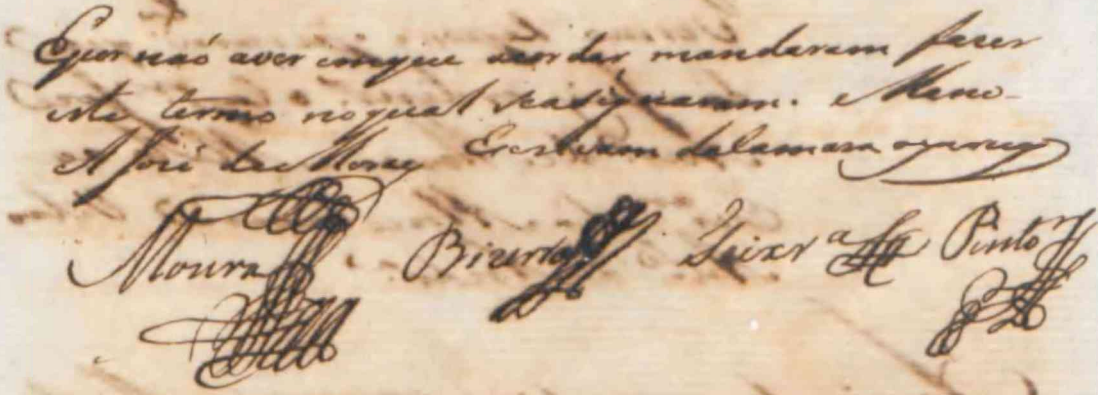 E por naõ aver em que acordar, mandaram fazer
este termo no qual se asignaram. e Mano-
el José de Moraes Escrivam da Camara o escrevy
Moura Teixr.ª Pinto